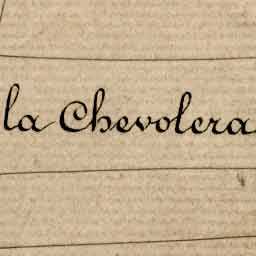 la Chevolera